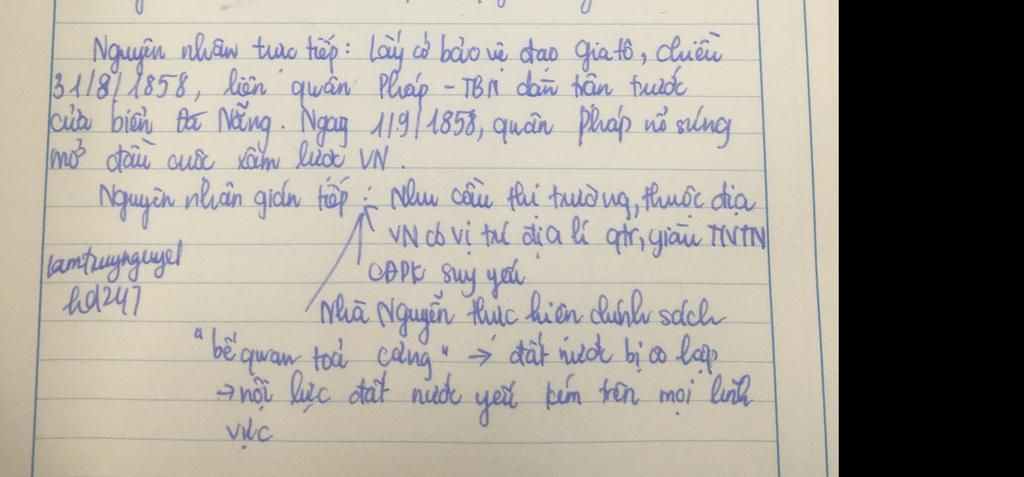 Nguyên nhân trực tiếp: Lấy cớ bảo vệ đạo Gia tô, chiều
31/8/1858, liên quân Pháp - TBN dàn trận trước
cửa biển Đà Nẵng. Ngay 1/9/1858, quân Pháp nổ súng
mở đầu cuộc xâm lược VN.
Nguyên nhân gián tiếp: Nhu cầu thị trường, thuộc địa
VN có vị trí địa lí qtr, giàu TNTN
CĐPK suy yếu
lamtruynguyet
hd247
Nhà Nguyễn thực hiện chính sách
"bế quan toả cảng" → đất nước bị cô lập
→ nội lực đất nước yếu kém trên mọi lĩnh
vực